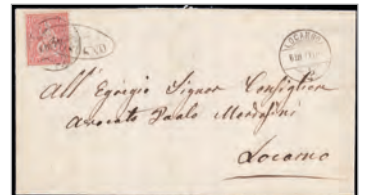 LOCARNO
All' Egregio Signor Consigliere
avvocato Paolo Mordasini
Locarno